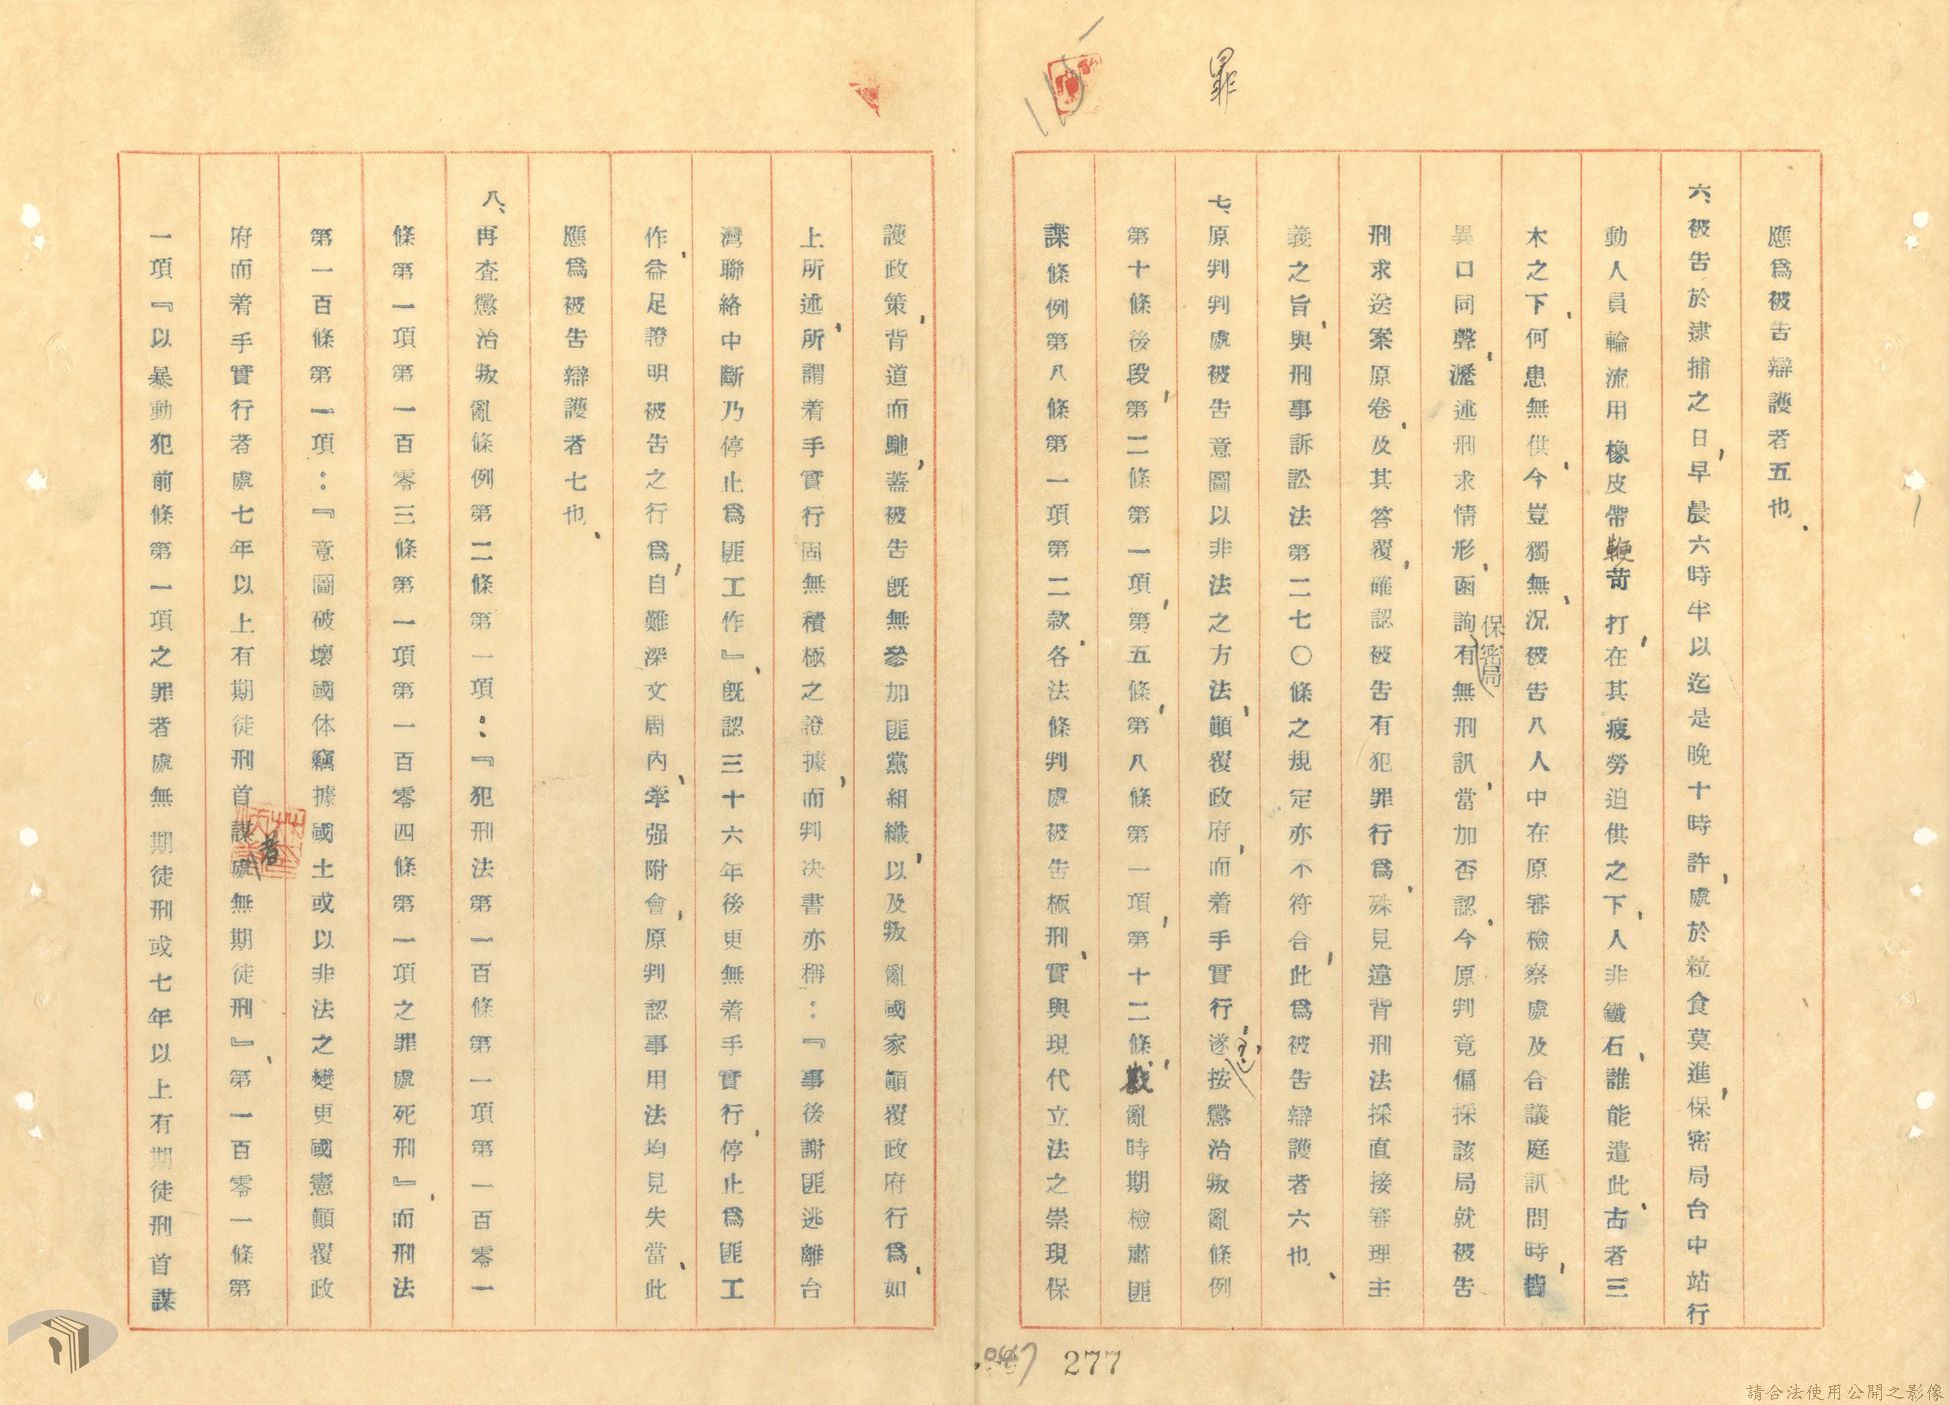 罪
應爲被告辯護者五也、
六、被告於逮捕之日、早晨六時半以迄是晚十時許、處於粒食莫進、保密局台中站行
動人員輪流用橡皮帶鞭苛打、在其疲勞迫供之下、人非鐵石、誰能遣此、古者三
木之下、何患無供、今豈獨無、況被告八人中在原審檢察處及合議庭訊問時、皆
異口同聲、瀝述刑求情形、函詢保密局有無刑訊、當加否認、今原判竟偏採該局就被告
刑求送案原卷、及其答覆、確認被告有犯罪行爲、殊見違背刑法採直接審理主
義之旨、與刑事訴訟法第二七〇條之規定亦不符合、此爲被告辯護者六也、
七、原判判處被告意圖以非法之方法、顚覆政府、而着手實行、遂按懲治叛亂條例
第十條後段、第二條第一項、第五條、第八條第一項、第十二條、戡亂時期檢肅匪
諜條例第八條第一項第二款、各法條判處被告極刑、實與現代立法之崇現保
護政策、背道而馳、蓋被告旣無參加匪黨組織、以及叛亂國家顚覆政府行爲、如
上所述、所謂着手實行固無積極之證據、而判决書亦稱：『事後謝匪逃離台
灣聯絡中斷乃停止爲匪工作』、旣認三十六年後更無着手實行、停止爲匪工
作、益足證明被告之行爲、自難深文周內、牽强附會、原判認事用法均見失當、此
應爲被告辯護者七也、
八、再查懲治叛亂條例第二條第一項：『犯刑法第一百條第一項第一百零一
條第一項第一百零三條第一項第一百零四條第一項之罪處死刑』、而刑法
第一百條第一項：『意圖破壞國体竊據國土或以非法之變更國憲顚覆政
府而着手實行者處七年以上有期徒刑首謀者處無期徒刑』、第一百零一條第
一項『以暴動犯前條第一項之罪者處無期徒刑或七年以上有期徒刑首謀
277
請合法使用公開之影像